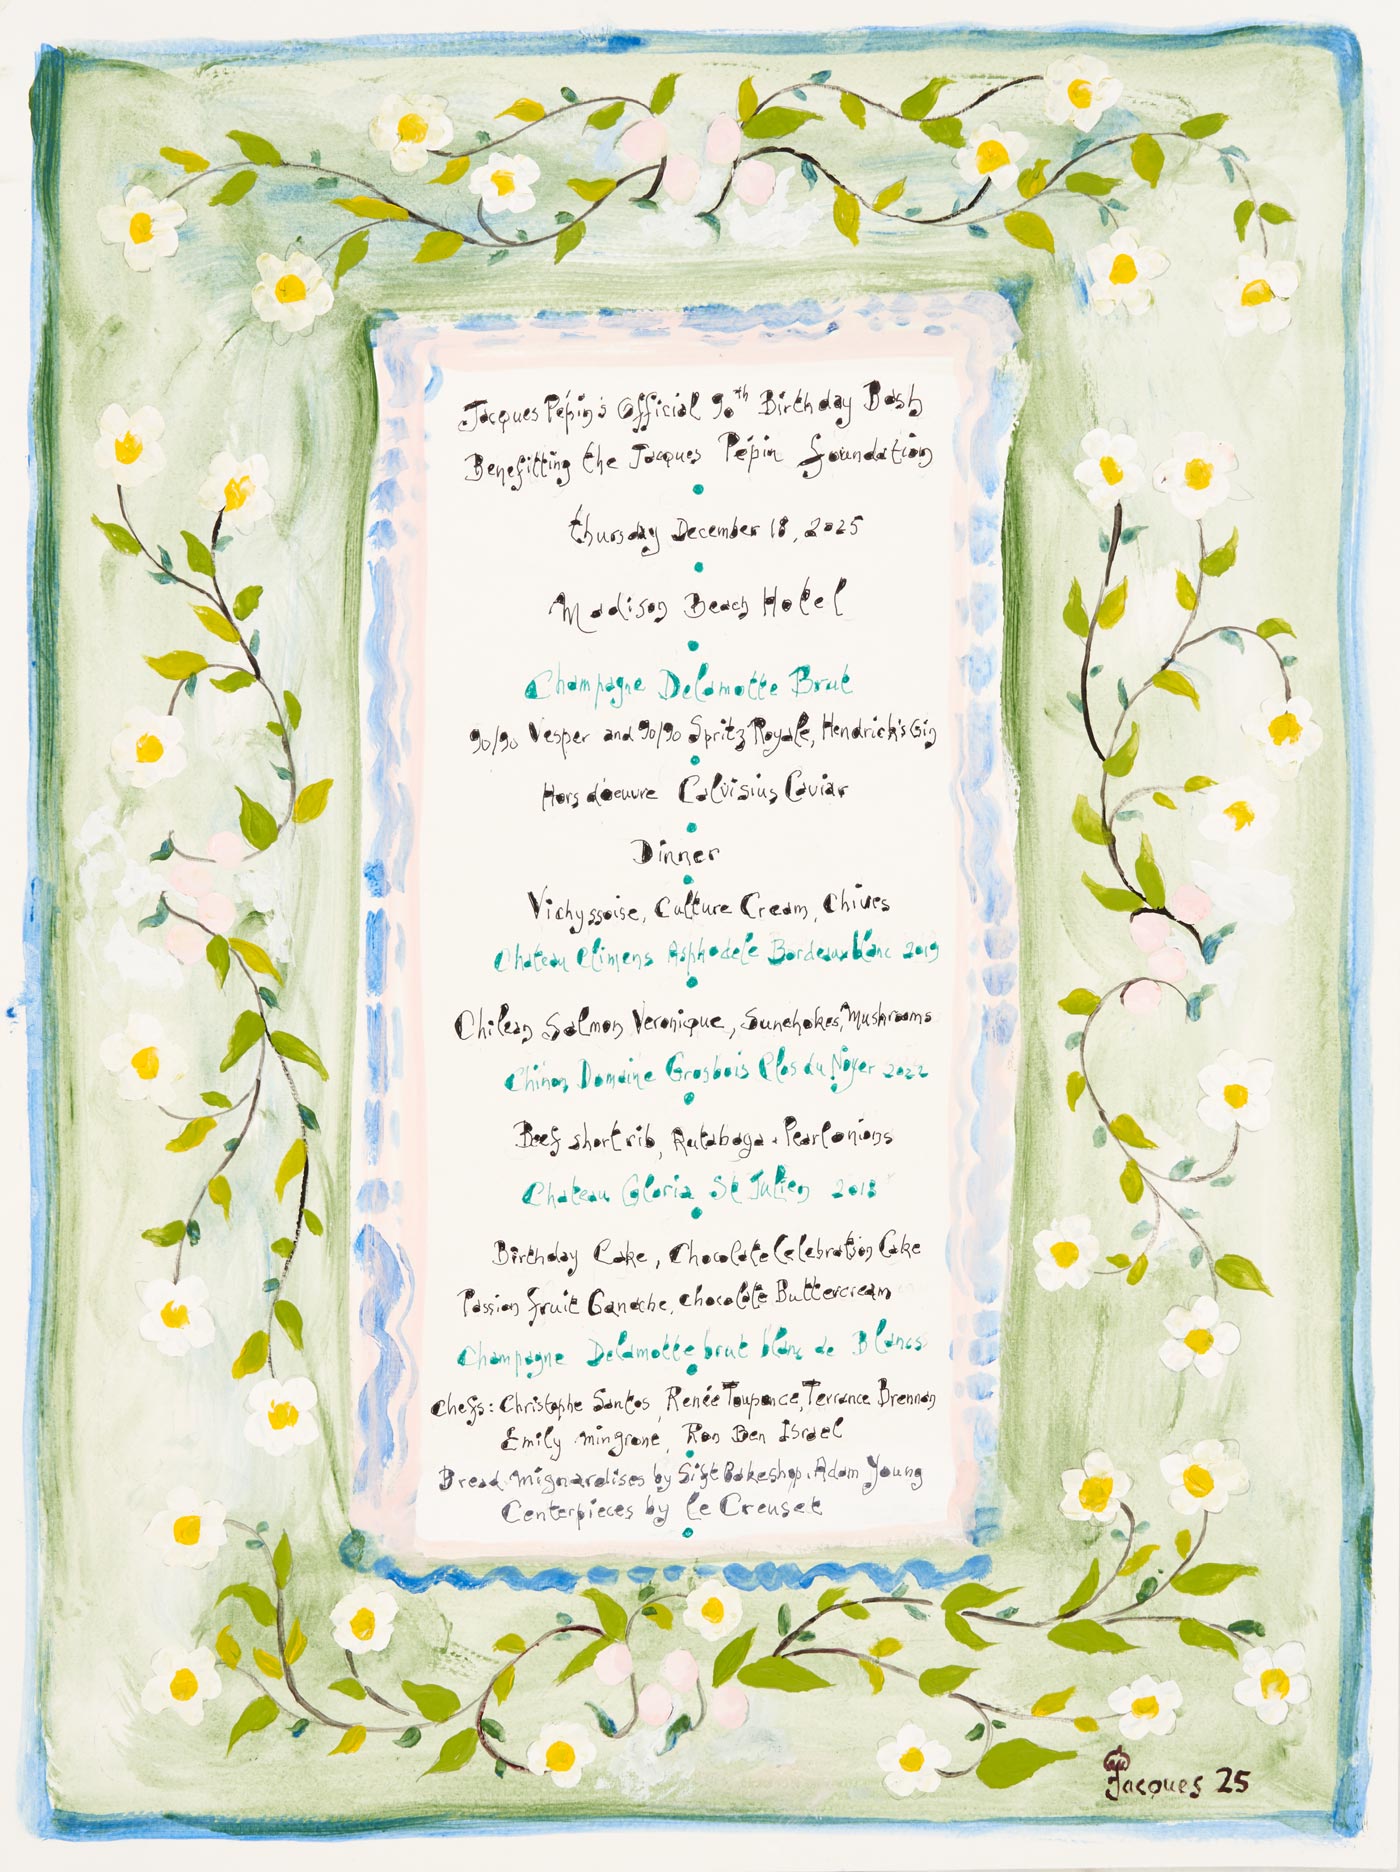 Jacques Pépin's Official 90th Birthday Bash
Benefitting the Jacques Pépin foundation
Thursday December 18, 2025
Madison Beach Hotel
Champagne Delamotte Brut
90/90 Vesper and 90/90 Spritz Royale, Hendrick's Gin
Hors d'oeuvre Calvisius Caviar
Dinner
Vichyssoise, Culture Cream, Chives
Chateau Climens Asphodele Bordeaux blanc 2019
Chilean Salmon Veronique, Sunchokes, Mushrooms
Chinon Domaine Grosbois Clos du Noyer 2022
Beef short rib, Rutabaga + Pearl onions
Chateau Gloria St Julien 2018
Birthday Cake, Chocolate Celebration Cake
Passion fruit Ganache, chocolate Buttercream
Champagne Delamotte brut blanc de Blancs
Chefs: Christophe Santos, Renée Touponce, Terrance Brennan
Emily mingrone, Ron Ben Israel
Bread mignardises by Sift Bakeshop, Adam Young
Centerpieces by le Creuset
Jacques 25